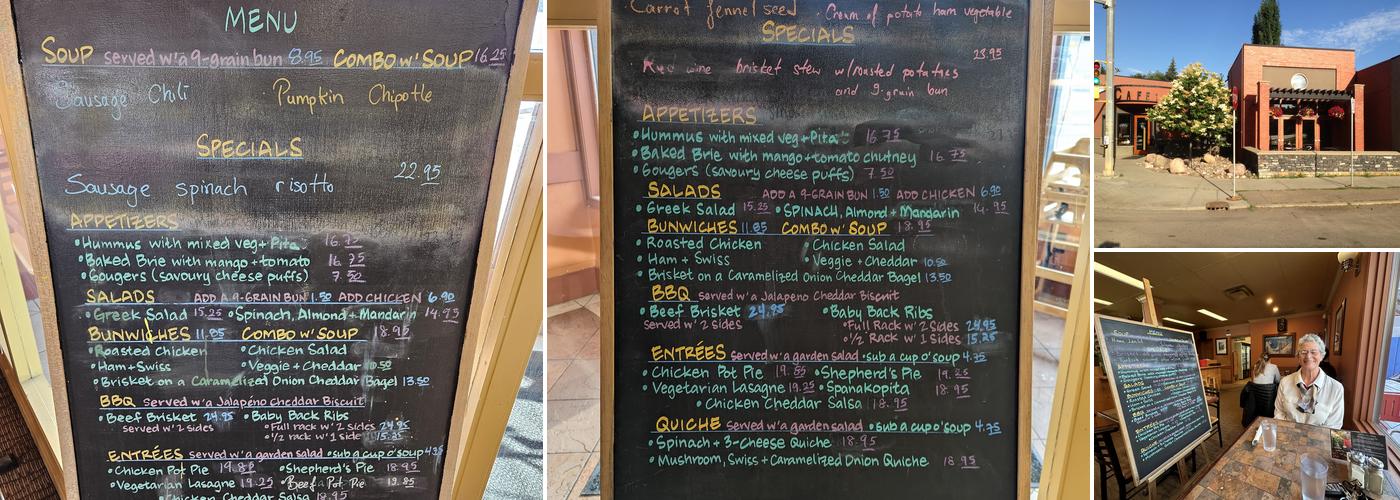 MENU
SOUP served w'a 9-grain bun 8.95 COMBO w' SOUP 16.25
Sausage Chili Pumpkin Chipotle
SPECIALS
22.95
Sausage spinach risotto
APPETIZERS
•Hummus with mixed veg + Pita 16.75
•Baked Brie with mango + tomato 16.75
•Gougers (savoury cheese puffs) 7.50
SALADS ADD A 9-GRAIN BUN 1.50 ADD CHICKEN 6.90
•Greek Salad 15.25 •Spinach, Almond + Mandarin 14.95
BUNWICHES 11.85 COMBO w' SOUP 18.95
•Roasted Chicken •Chicken Salad
•Ham + Swiss •Veggie + Cheddar 10.50
•Brisket on a Caramelized Onion Cheddar Bagel 13.50
BBQ served w'a Jalapeño Cheddar Biscuit
•Beef Brisket 24.95 •Baby Back Ribs
served w' 2 sides •Full rack w' 2 sides 24.95
•½ rack w' 1 side 15.25
ENTRÉES served w'a garden salad •sub a cup o' soup 4.75
•Chicken Pot Pie •Shepherd's Pie 18.95
•Vegetarian Lasagne 19.25 •Beef Pot Pie 19.95
•Chicken Cheddar Salsa 18.95
Carrot fennel seed · Cream of potato ham vegetable
SPECIALS
23.95
Red wine brisket stew w/roasted potatoes
and 9-grain bun
APPETIZERS
•Hummus with mixed veg + Pita 16.75
•Baked Brie with mango + tomato chutney 16.75
•Gougers (savoury cheese puffs) 7.50
SALADS ADD A 9-GRAIN BUN 1.50 ADD CHICKEN 6.90
•Greek Salad 15.25 •SPINACH, Almond + Mandarin 14.95
BUNWICHES 11.85 COMBO w' SOUP 18.95
•Roasted Chicken •Chicken Salad
•Ham + Swiss •Veggie + Cheddar 10.50
•Brisket on a Caramelized Onion Cheddar Bagel 13.50
BBQ served w'a Jalapeno Cheddar Biscuit
•Beef Brisket 24.95 •Baby Back Ribs
served w' 2 sides •Full Rack w' 2 Sides 24.95
•½ Rack w' 1 Sides 15.25
ENTRÉES served w'a garden salad •sub a cup o' soup 4.75
•Chicken Pot Pie 19.85 •Shepherd's Pie 19.25
•Vegetarian Lasagne 19.25 •Spanakopita 18.95
•Chicken Cheddar Salsa 18.95
QUICHE served w'a garden salad •sub a cup o' soup 4.75
•Spinach + 3-Cheese Quiche 18.95
•Mushroom, Swiss + Caramelized Onion Quiche 18.95
CAFE
SOUP MENU